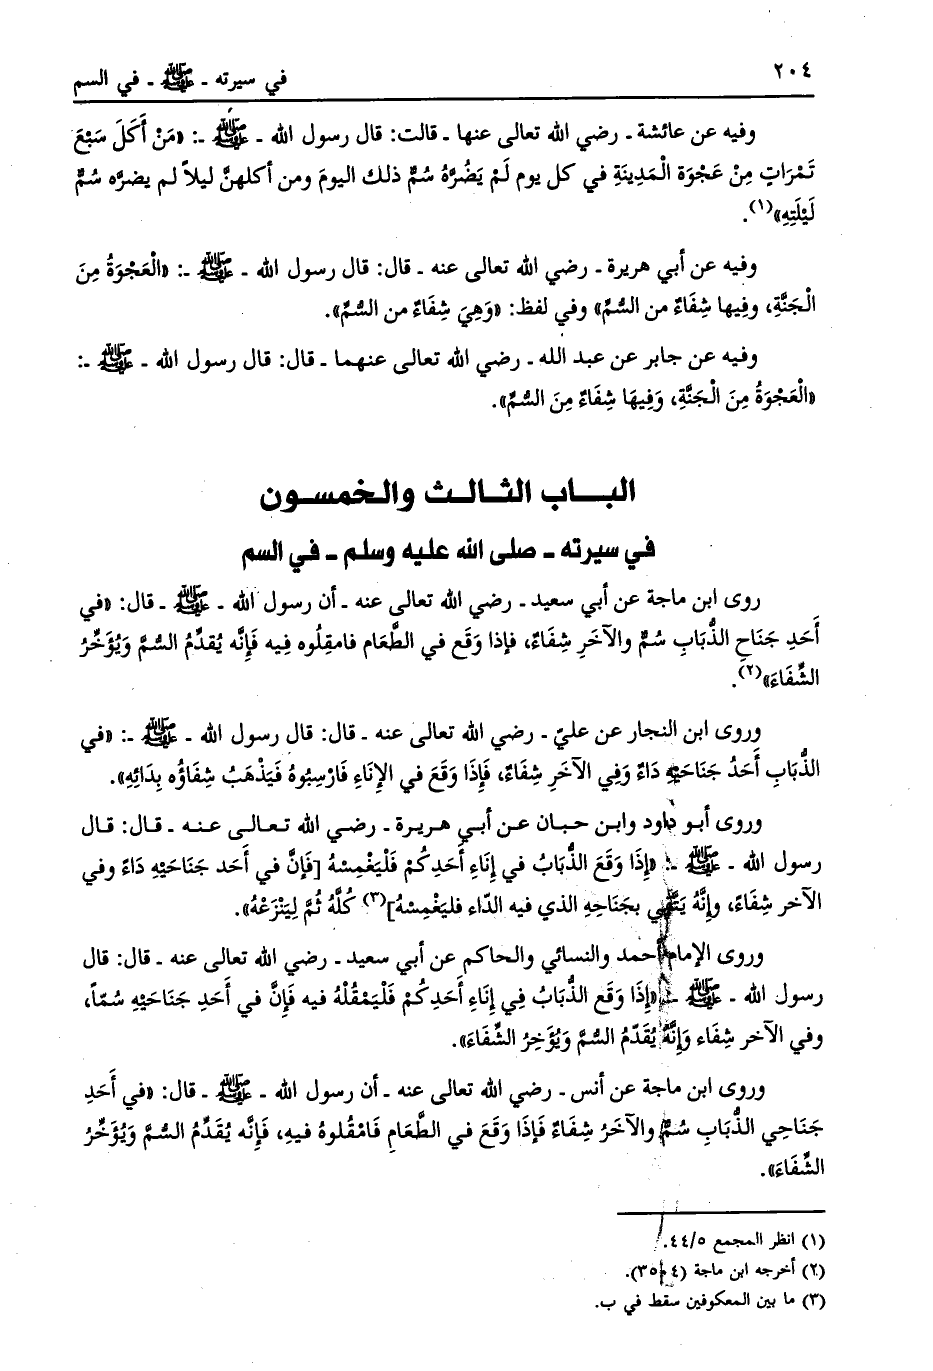 ٢٠٤ في سيرته ـ ﷺ ـ في السم
وفيه عن عائشة ـ رضي الله تعالى عنها ـ قالت: قال رسول الله ـ ﷺ ـ: «مَنْ أَكَلَ سَبْعَ
تَمْرَاتٍ مِنْ عَجْوَة الْمَدِينَةِ في كل يوم لَمْ يَضُرَّهُ سُمٌّ ذلك اليومَ ومن أكلهنَّ ليلاً لم يضرَّه سُمٌّ
لَيْلَتِهِ»(١).
وفيه عن أبي هريرة ـ رضي الله تعالى عنه ـ قال: قال رسول الله ـ ﷺ ـ: «الْعَجْوَةُ مِنَ
الْجَنَّةِ، وفِيها شِفَاءٌ من السُّمِّ» وفي لفظ: «وَهِيَ شِفَاءٌ من السُّمِّ».
وفيه عن جابر عن عبد الله ـ رضي الله تعالى عنهما ـ قال: قال رسول الله ـ ﷺ ـ:
«الْعَجْوَةُ مِنَ الْجَنَّةِ، وَفِيهَا شِفَاءٌ مِنَ السُّمِّ».
الباب الثالث والخمسون
في سيرته ـ صلى الله عليه وسلم ـ في السم
روى ابن ماجة عن أبي سعيد ـ رضي الله تعالى عنه ـ أن رسول الله ـ ﷺ ـ قال: «في
أَحَدِ جَنَاحِ الذُّبَابِ سُمٌّ والآخَرِ شِفَاءٌ، فإذا وَقَع في الطَّعام فامقِلُوه فِيه فَإِنَّه يُقدِّمُ السُّمَّ وَيُؤَخِّرُ
الشِّفَاءَ»(٢).
وروى ابن النجار عن عليّ ـ رضي الله تعالى عنه ـ قال: قال رسول الله ـ ﷺ ـ: «في
الذُّبَابِ أَحَدُ جَنَاحَيْهِ دَاءٌ وَفِي الآخَرِ شِفَاءٌ، فَإِذَا وَقَعَ في الإِنَاءِ فَارْسِبُوهُ فَيَذْهَبُ شِفَاؤُه بِدَائِهِ».
وروى أبو داود وابن حبان عن أبي هريرة ـ رضي الله تعالى عنه ـ قال: قال
رسول الله ـ ﷺ ـ: «إِذَا وَقَعَ الذُّبَابُ في إِنَاءِ أَحَدِكُمْ فَلْيَغْمِسْهُ [فَإِنَّ في أَحَد جَنَاحَيْهِ دَاءً وفي
الآخر شِفَاءً، وإِنَّهُ يَتَّقِي بجَنَاحِهِ الذي فيه الدَّاء فليَغْمِسْهُ](٣) كُلَّهُ ثُمَّ لِيَنْزَعْهُ».
وروى الإمام أحمد والنسائي والحاكم عن أبي سعيد ـ رضي الله تعالى عنه ـ قال: قال
رسول الله ـ ﷺ ـ «إِذَا وَقَع الذُّبَابُ فِي إِنَاءِ أَحَدِكُمْ فَلْيَمْقُلْهُ فيه فَإِنَّ في أَحَدِ جَنَاحَيْهِ سُمّاً،
وفي الآخر شِفَاء وَإِنَّهُ يُقَدِّمُ السُّمَّ وَيُؤَخِرُ الشِّفَاءَ».
وروى ابن ماجة عن أنس ـ رضي الله تعالى عنه ـ أن رسول الله ـ ﷺ ـ قال: «في أَحَدِ
جَنَاحِي الذُّبَابِ سُمٌّ والآخَرُ شِفَاءٌ فَإِذَا وَقَعَ في الطَّعَامِ فَامْقُلوهُ فيهِ، فَإِنَّه يُقَدِّمُ السُّمَّ وَيُؤَخِّرُ
الشِّفَاءَ».
(١) انظر المجمع ٤٤/٥.
(٢) أخرجه ابن ماجة (٣٥٠٤).
(٣) ما بين المعكوفين سقط في ب.